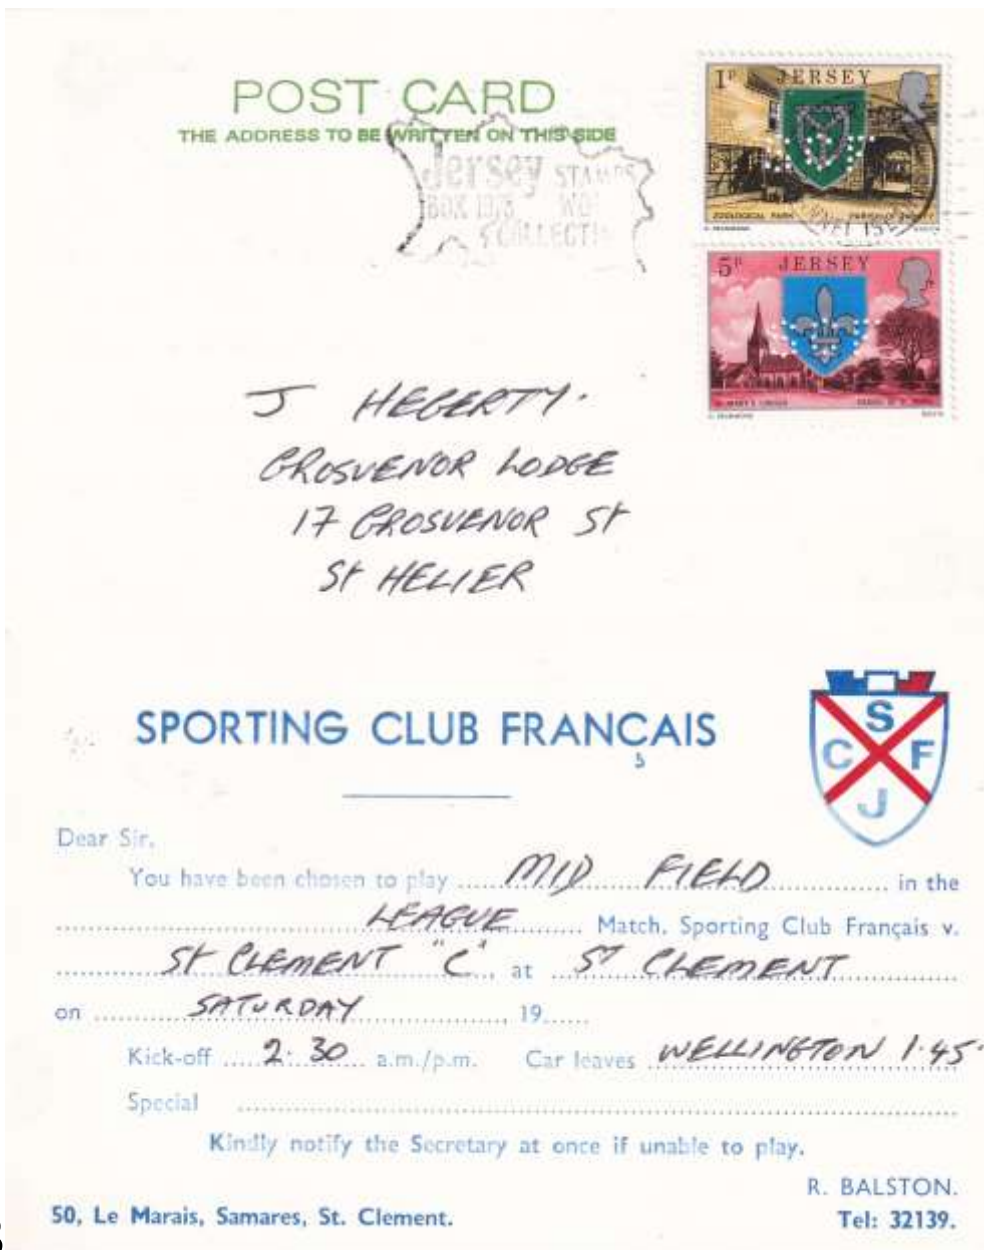 POST CARD
THE ADDRESS TO BE WRITTEN ON THIS SIDE
Jersey STAMPS
BOX
COLLECTI
1P JERSEY
ZOOLOGICAL PARK
5P JERSEY
J HEGERTY.
GROSVENOR LODGE
17 GROSVENOR St
St HELIER
SPORTING CLUB FRANÇAIS
S
C F
J
Dear Sir,
You have been chosen to play MID FIELD in the
LEAGUE Match, Sporting Club Français v.
St CLEMENT "C", at ST CLEMENT
on SATURDAY, 19......
Kick-off 2.30 a.m./p.m. Car leaves WELLINGTON 1.45.
Special
Kindly notify the Secretary at once if unable to play.
R. BALSTON.
50, Le Marais, Samares, St. Clement. Tel: 32139.